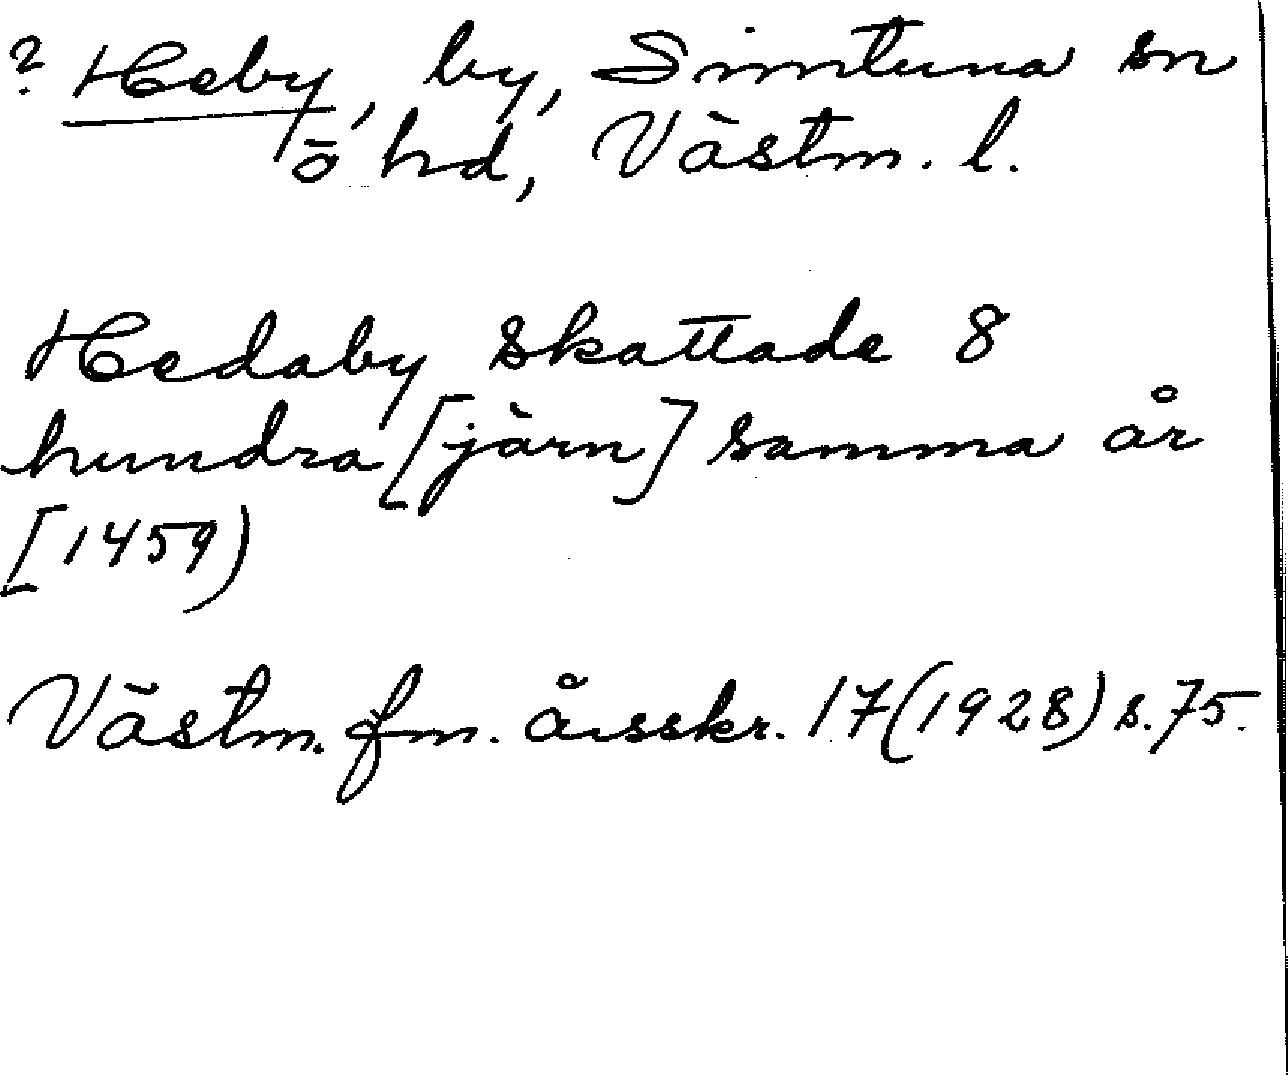 ? Heby, by, Simtuna sn
ö hd, Västm. l.
Hedaby skattade 8
hundra [järn] samma år
[1459)
Västm. fm. årsskr. 17(1928) s.75.